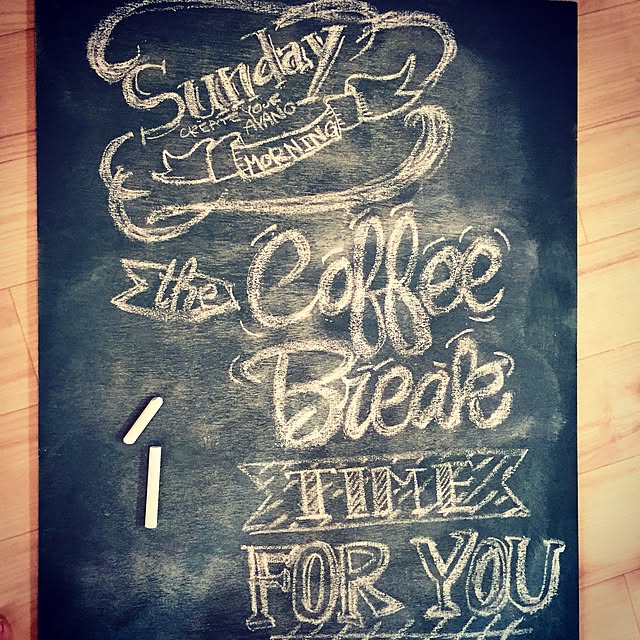 Sunday
CREATE YOUR
AYANG
MORNING
the Coffee
Break
TIME
FOR YOU